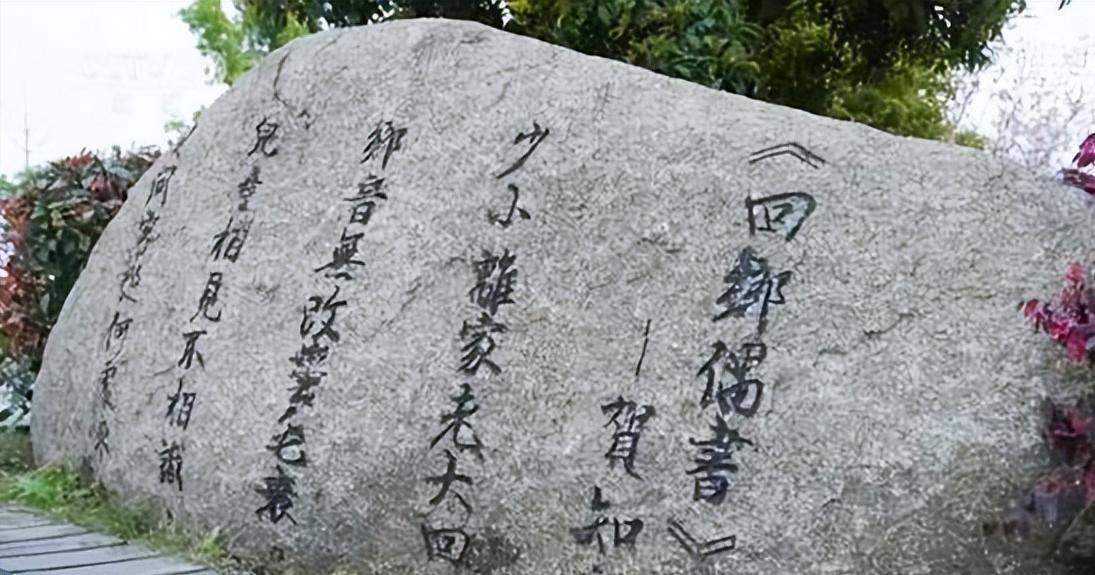 《回鄉偶書》
—賀知
少小離家老大回
鄉音無改鬢毛衰
兒童相見不相識
問客從何處來